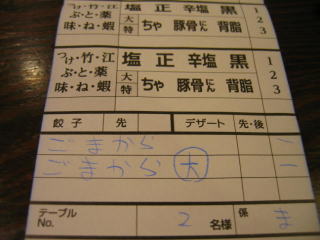 ぶ・と・薬 大
味・ね・蝦 特 ちゃ 豚骨 にん 背脂 3
つけ・竹・江 塩 正 辛塩 黒 1
ぶ・と・薬 大 2
味・ね・蝦 特 ちゃ 豚骨 にん 背脂 3
餃子 先 デザート 先・後
ごまから 一
ごまから 大 一
テーブル No. 2 名様 係 ま